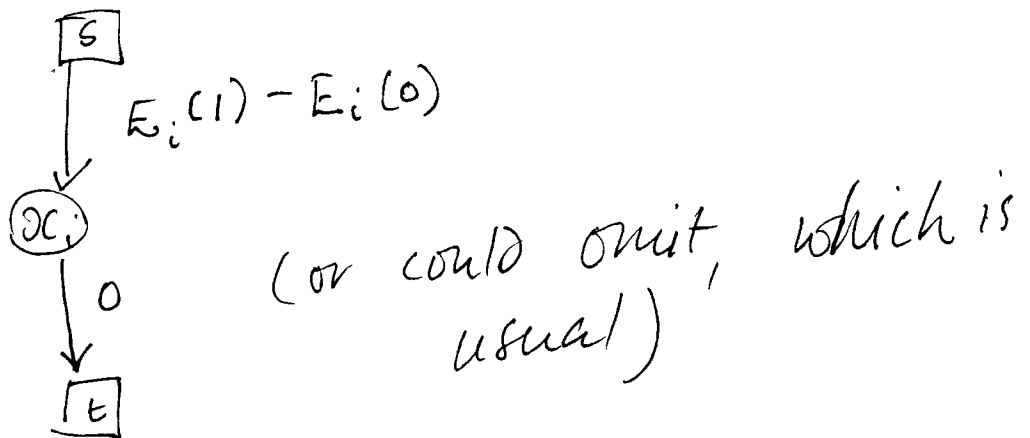 s
E_i(1) - E_i(0)
x_i
0
(or could omit, which is
usual)
t